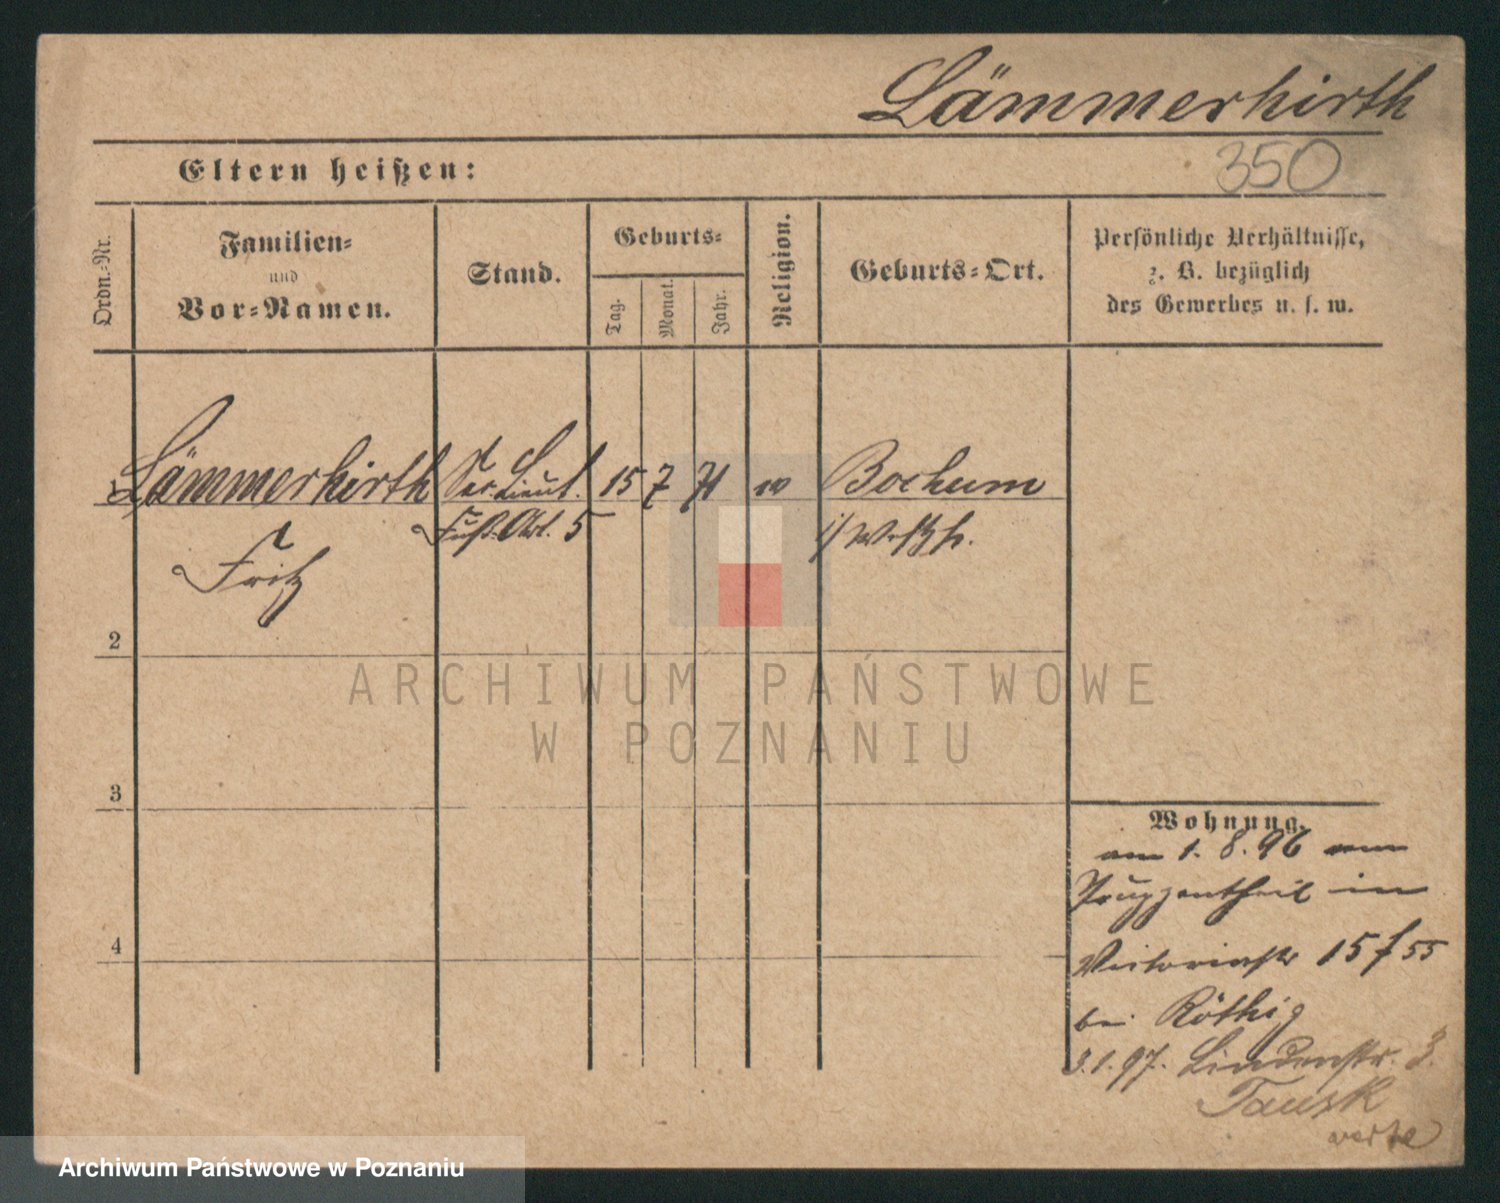 Lämmerhirth
350
Eltern heißen:
Ordn.-Nr.
Familien-
und
Vor-Namen.
Stand.
Geburts-
Tag.
Monat.
Jahr.
Religion.
Geburts-Ort.
Persönliche Verhältnisse,
z. B. bezüglich
des Gewerbes u. s. w.
1 Lämmerhirth Sec. Lieut. 15 7 71 ev Bochum
Fuß-Art. 5 i/ Westph.
Fritz
2
3
4
ARCHIWUM PAŃSTWOWE
W POZNANIU
Wohnung.
am 1. 8. 96 vom
Truppentheil in
Victoriastr 15 f 55
bei Röthig
3.1.97. Lindenstr. 3.
Tausk
verte
Archiwum Państwowe w Poznaniu